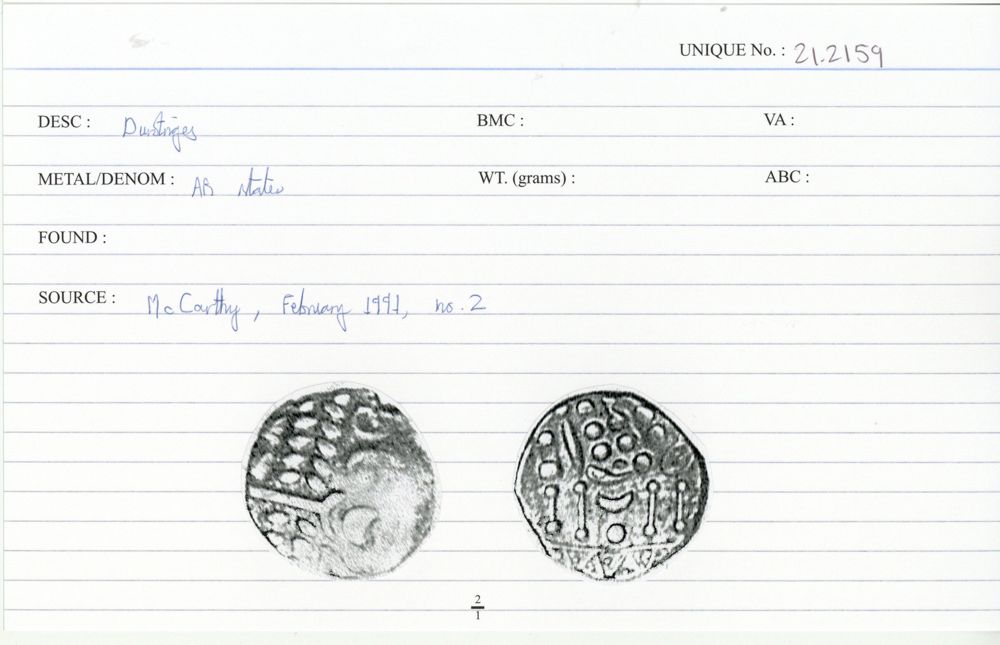 UNIQUE No. : 21.2159
DESC : Durotriges
BMC :
VA :
METAL/DENOM : AR stater
WT. (grams) :
ABC :
FOUND :
SOURCE : McCarthy, February 1991, no. 2
2
1